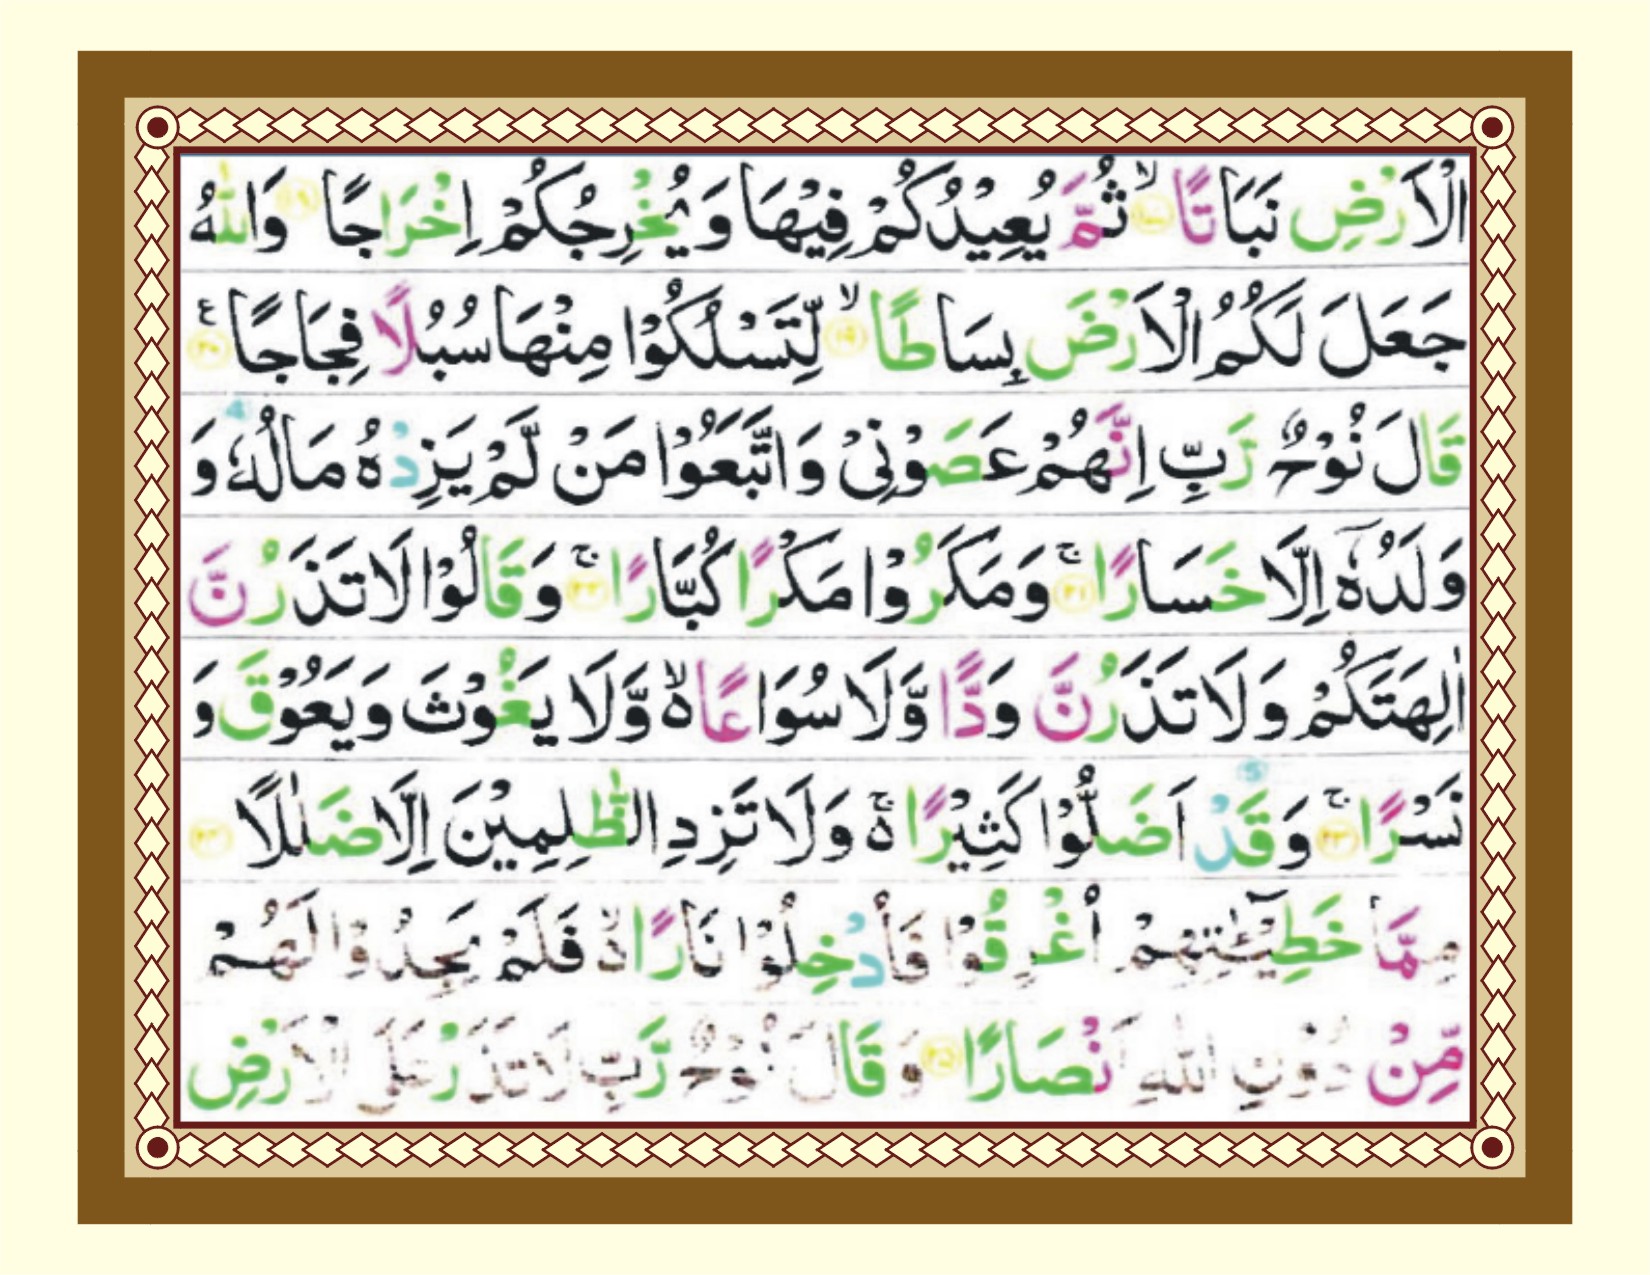 الْاَرْضِ نَبَاتًا ۙ﴿۱۷﴾ ثُمَّ يُعِيْدُكُمْ فِيْهَا وَ يُخْرِجُكُمْ اِخْرَاجًا ﴿۱۸﴾ وَاللّٰهُ
جَعَلَ لَكُمُ الْاَرْضَ بِسَاطًا ۙ﴿۱۹﴾ لِّتَسْلُكُوْا مِنْهَا سُبُلًا فِجَاجًا ﴿۲۰﴾ ع
قَالَ نُوْحٌ رَّبِّ اِنَّهُمْ عَصَوْنِيْ وَاتَّبَعُوْا مَنْ لَّمْ يَزِدْهُ مَالُهٗ وَ
وَلَدُهٗۤ اِلَّا خَسَارًا ۚ﴿۲۱﴾ وَمَكَرُوْا مَكْرًا كُبَّارًا ۚ﴿۲۲﴾ وَقَالُوْا لَا تَذَرُنَّ
اٰلِهَتَكُمْ وَلَا تَذَرُنَّ وَدًّا وَّلَا سُوَاعًا ۙ۬ وَّلَا يَغُوْثَ وَيَعُوْقَ وَ
نَسْرًا ۚ﴿۲۳﴾ وَقَدْ اَضَلُّوْا كَثِيْرًا ۚ۬ وَلَا تَزِدِ الظّٰلِمِيْنَ اِلَّا ضَلٰلًا ﴿۲۴﴾
مِمَّا خَطِيْٓـٰٔتِهِمْ اُغْرِقُوْا فَاُدْخِلُوْا نَارًا ۙ۬ فَلَمْ يَجِدُوْا لَهُمْ
مِّنْ دُوْنِ اللّٰهِ اَنْصَارًا ﴿۲۵﴾ وَ قَالَ نُوْحٌ رَّبِّ لَا تَذَرْ عَلَى الْاَرْضِ